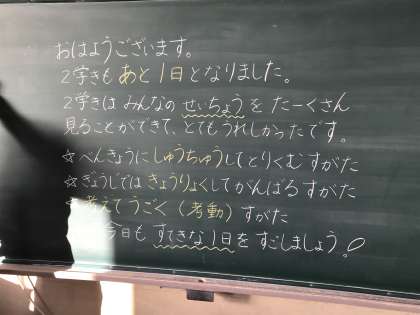 おはようございます。
2学きも あと1日となりました。
2学きは みんなの せいちょうを たーくさん
見ることができて、とてもうれしかったです。
☆べんきょうに しゅうちゅうしてとりくむ すがた
☆ぎょうじでは きょうりょくしてがんばる すがた
考えてうごく(考動)すがた
今日も すてきな1日を すごしましょう!